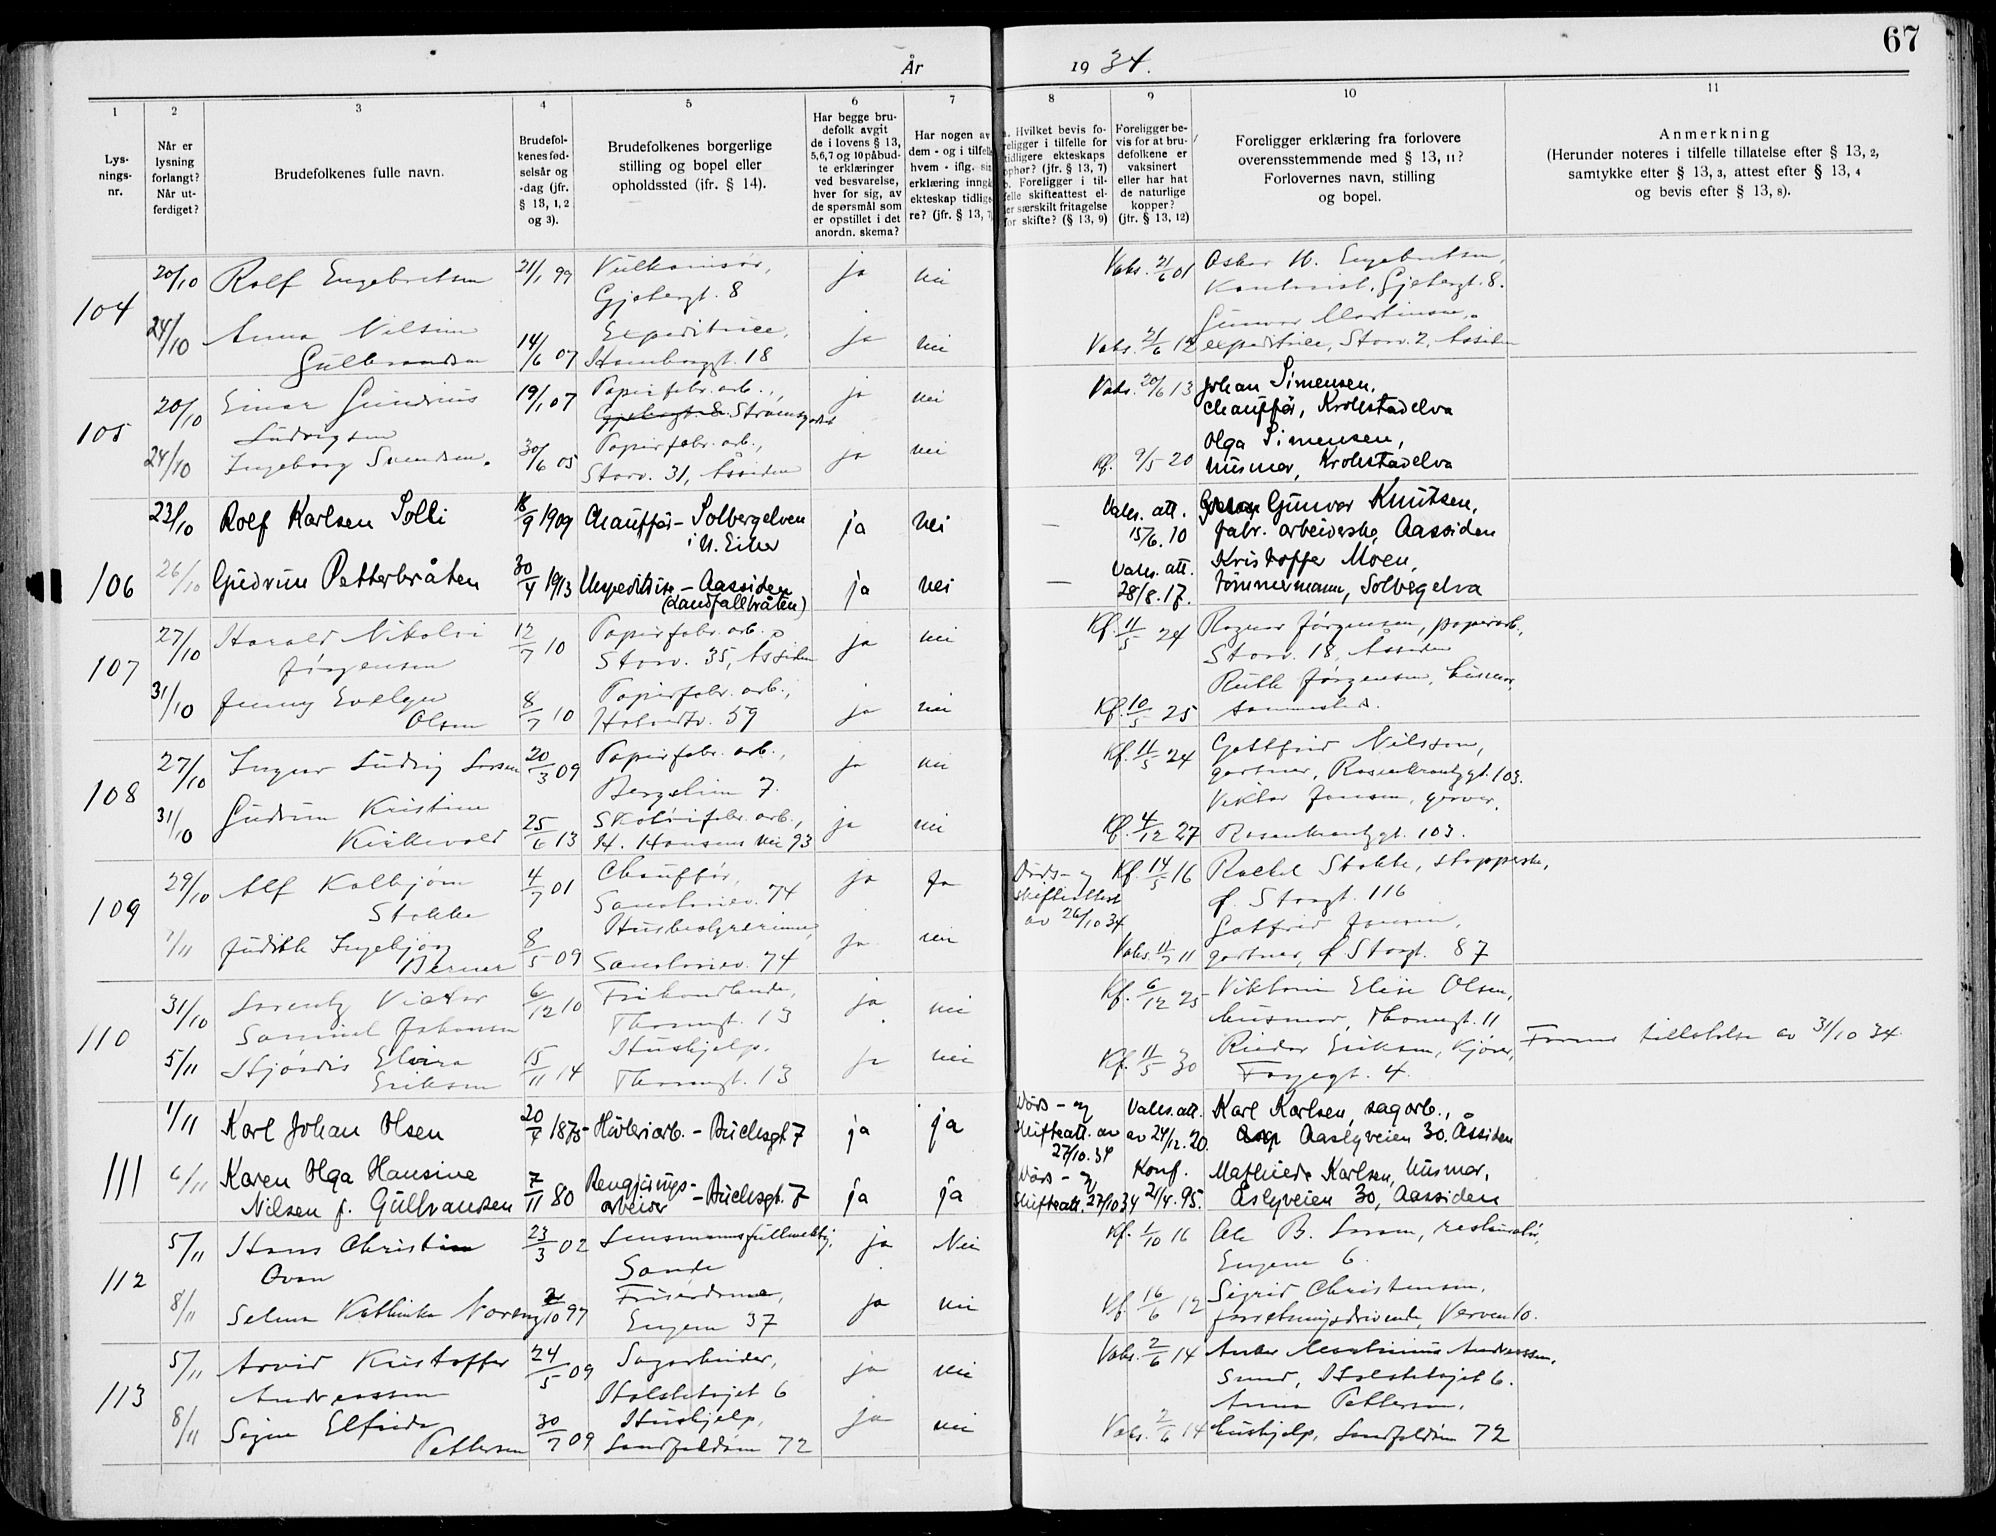 67
År 1934.
1
2
3
4
5
6
7
8
9
10
11
Lys-
nings-
nr.
Når er
lysning
forlangt?
Når ut-
ferdiget?
Brudefolkenes fulle navn.
Brudefol-
kenes fød-
selsår og
-dag (jfr.
§ 13, 1, 2
og 3).
Brudefolkenes borgerlige
stilling og bopel eller
opholdssted (ifr. § 14).
Har begge bru-
defolk avgit
de i lovens § 13,
5,6,7 og 10 påbud-
te erklæringer
ved besvarelse,
hver for sig, av
de spørsmål som
er opstillet i det
anordn. skema?
Har nogen av
dem - og i tilfelle
hvem - iflg. sin
erklæring inngå
ekteskap tidlige-
re? (jfr. § 13, 7
a. Hvilket bevis fo-
religger i tilfelle for
tidligere ekteskaps
ophør? (jfr. § 13, 7)
b. Foreligger i til-
felle skifteattest el-
ler særskilt fritagelse
for skifte? (§ 13, 9)
Foreligger be-
vis for at bru-
defolkene er
vaksinert
eller har hat
de naturlige
kopper?
(jfr. § 13, 12)
Foreligger erklæring fra forlovere
overensstemmende med § 13, 11?
Forlovernes navn, stilling
og bopel.
Anmerkning
(Herunder noteres i tilfelle tillatelse efter § 13, 2,
samtykke efter § 13, 3, attest efter § 13, 4
og bevis efter § 13, 8).
104
20/10 Rolf Engebretsen 21/1 99 Vulkanisør, ja nei Vaks. 21/6 01 Oskar W. Engebretsen,
Gjetergt. 8 Kontorist, Gjetergt. 8.
24/10 Anna Nilsine Expeditrice, ja nei Gunvor Martinsen,
Gulbrandsen 14/6 07 Hamborggt. 18 Vaks. 21/6 12 expeditrice, Storv. 2, Åssiden
105
20/10 Einar Gundrius 19/1 07 Papirfabr. arb., ja nei Vaks. 20/6 13 Johan Simensen,
Ludvigsen Gjetergt. 8. Strømsgodset chauffør, Krokstadelva
24/10 Ingeborg Svendsen. 30/6 05 Papirfabr. arb., ja nei Olga Simensen,
Storv. 31, Åssiden Kf. 9/5 20 husmor, Krokstadelva
106
23/10 Rolf Karlsen Solli 18/9 1909 Chauffør - Solbergelven ja nei — Vaks. att. Gunvor Knutsen,
i N. Eiker 15/6. 10 fabr. arbeiderske, Aassiden
26/10 Gudrun Petterbråten 30/4 1913 Expeditrise - Aassiden ja nei — Vaks. att. Kristoffer Moen,
(Landfallbråten) 28/8. 17. tømmermann, Solbergelva
107
27/10 Harald Nikolai 12/7 10 Papirfabr. arb. ja nei Kf. 11/5 24 Ragnar Jørgensen, papirarb.,
Jørgensen Storv. 35, Åssiden Storv. 18, Åssiden
31/10 Jenny Evelyn 8/7 10 Papirfabr. arb., ja nei Ruth Jørgensen, husmor,
Olsen 59 Kf. 10/5 25 sammesteds.
108
27/10 Ingvar Ludvig Larsen 20/3 09 Papirfabr. arb., ja nei Kf. 11/5 24 Gottfrid Nilsson,
7. gartner, Rosenkrantzgt. 103.
31/10 Gudrun Kristine 25/6 13 Skotøifabr. arb., ja nei Viktor Jansen, garver,
Kirkevold H. Hansens vei 93 Kf. 4/12 27 Rosenkrantzgt. 103.
109
29/10 Alf Kolbjørn 4/7 01 Chauffør, ja Ja Døds- og Kf. 14/5 16 Rachel Stokke, stopperske,
Stokke 74 skifteattest ø. Storgt. 116
1/11 Judith Ingebjørg 8/5 09 Husbestyrerinne, ja nei av 26/10 34 Gotfrid Jansen,
Berner 74 Vaks. 11/7 11 gartner, ø. Storgt. 87
110
31/10 Lorentz Victor 6/12 10 Frihandlende, ja nei Kf. 6/12 25 Viktoria Elise Olsen,
Samuel Johansen Thomsgt. 13 husmor, Thomsgt. 11
5/11 Hjørdis Elvira 15/11 14 Hushjelp, ja nei Kf. 11/5 30 Reidar Eriksen, kjører, Farens tillatelse av 31/10 34.
Eriksen Thomsgt. 13 Torgegt. 4.
111
1/11 Karl Johan Olsen 20/4 1875 Høvleriarb. - Buchsgt 7 ja ja Døds- og Vaks. att. Karl Karlsen, sagarb.,
skifteatt. av 27/10. 34 av 24/12. 20. Aaslyveien 30. Åssiden
6/11 Karen Olga Hansine 7/11 80 Rengjørings- - Buchsgt 7 ja ja Døds- og Konf. Mathilde Karlsen, husmor,
Nilsen f. Gulbrandsen arbeider skifteatt. 27/10 34 21/4. 95. Åslyveien 30, Aassiden
112
5/11 Hans Christian 23/3 02 Lensmannsfullmektig, ja Nei Kf. 1/10 16 Ole B. Larsen, restauratør,
Oven Sande Engene 6.
8/11 Selma Kathinka Noreng 2/10 97 Frisørdame, ja nei Kf. 16/6 12 Sigrid Christensen,
Engene 37 forretningsdrivende, Verven 10.
113
5/11 Arvid Kristoffer 24/5 09 Sagarbeider, ja nei Vaks. 2/6 14 Anton Martinius Andreassen,
Andreassen 6 smed, 6.
8/11 Signe Elfrida 30/7 09 Hushjelp, ja nei Anna Pettersen,
Pettersen Landfaldøen 72 Vaks. 2/6 14 hushjelp, Landfaldøen 72